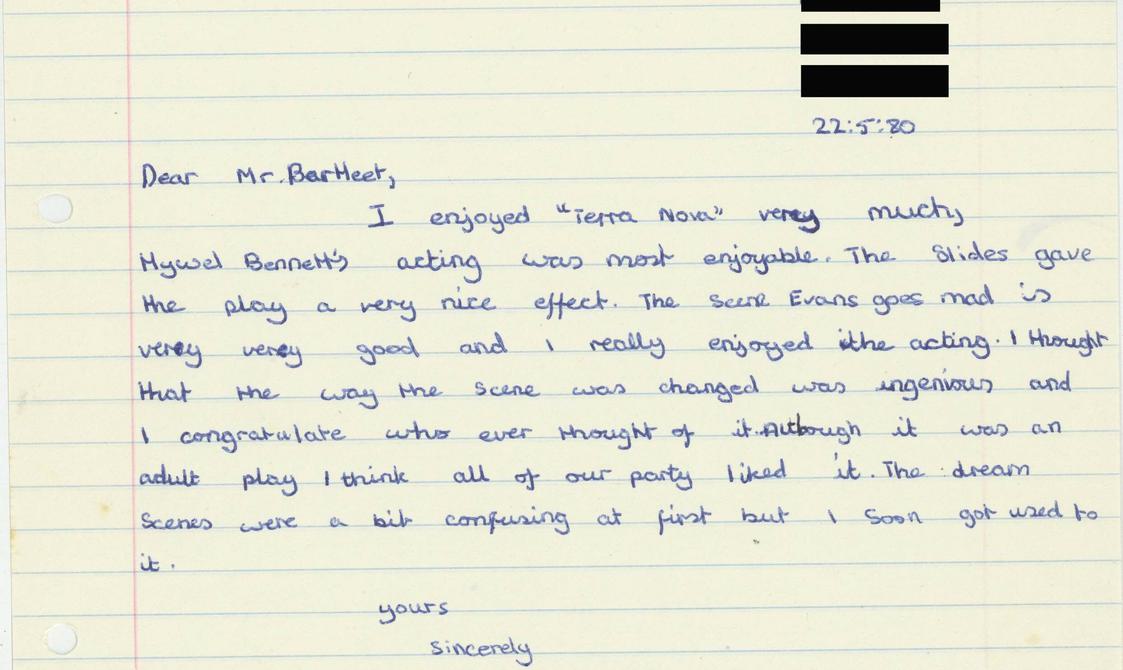 22:5:80
Dear Mr. Bartleet,
I enjoyed "Terra Nova" verey much,
Hywel Bennett's acting was most enjoyable. The Slides gave
the play a very nice effect. The Scene Evans goes mad is
verey verey good and I really enjoyed the acting. I thought
that the way the Scene was changed was ingenious and
I congratulate who ever thought of it. Although it was an
adult play I think all of our party liked it. The dream
Scenes were a bit confusing at first but I Soon got used to
it.
yours
sincerely